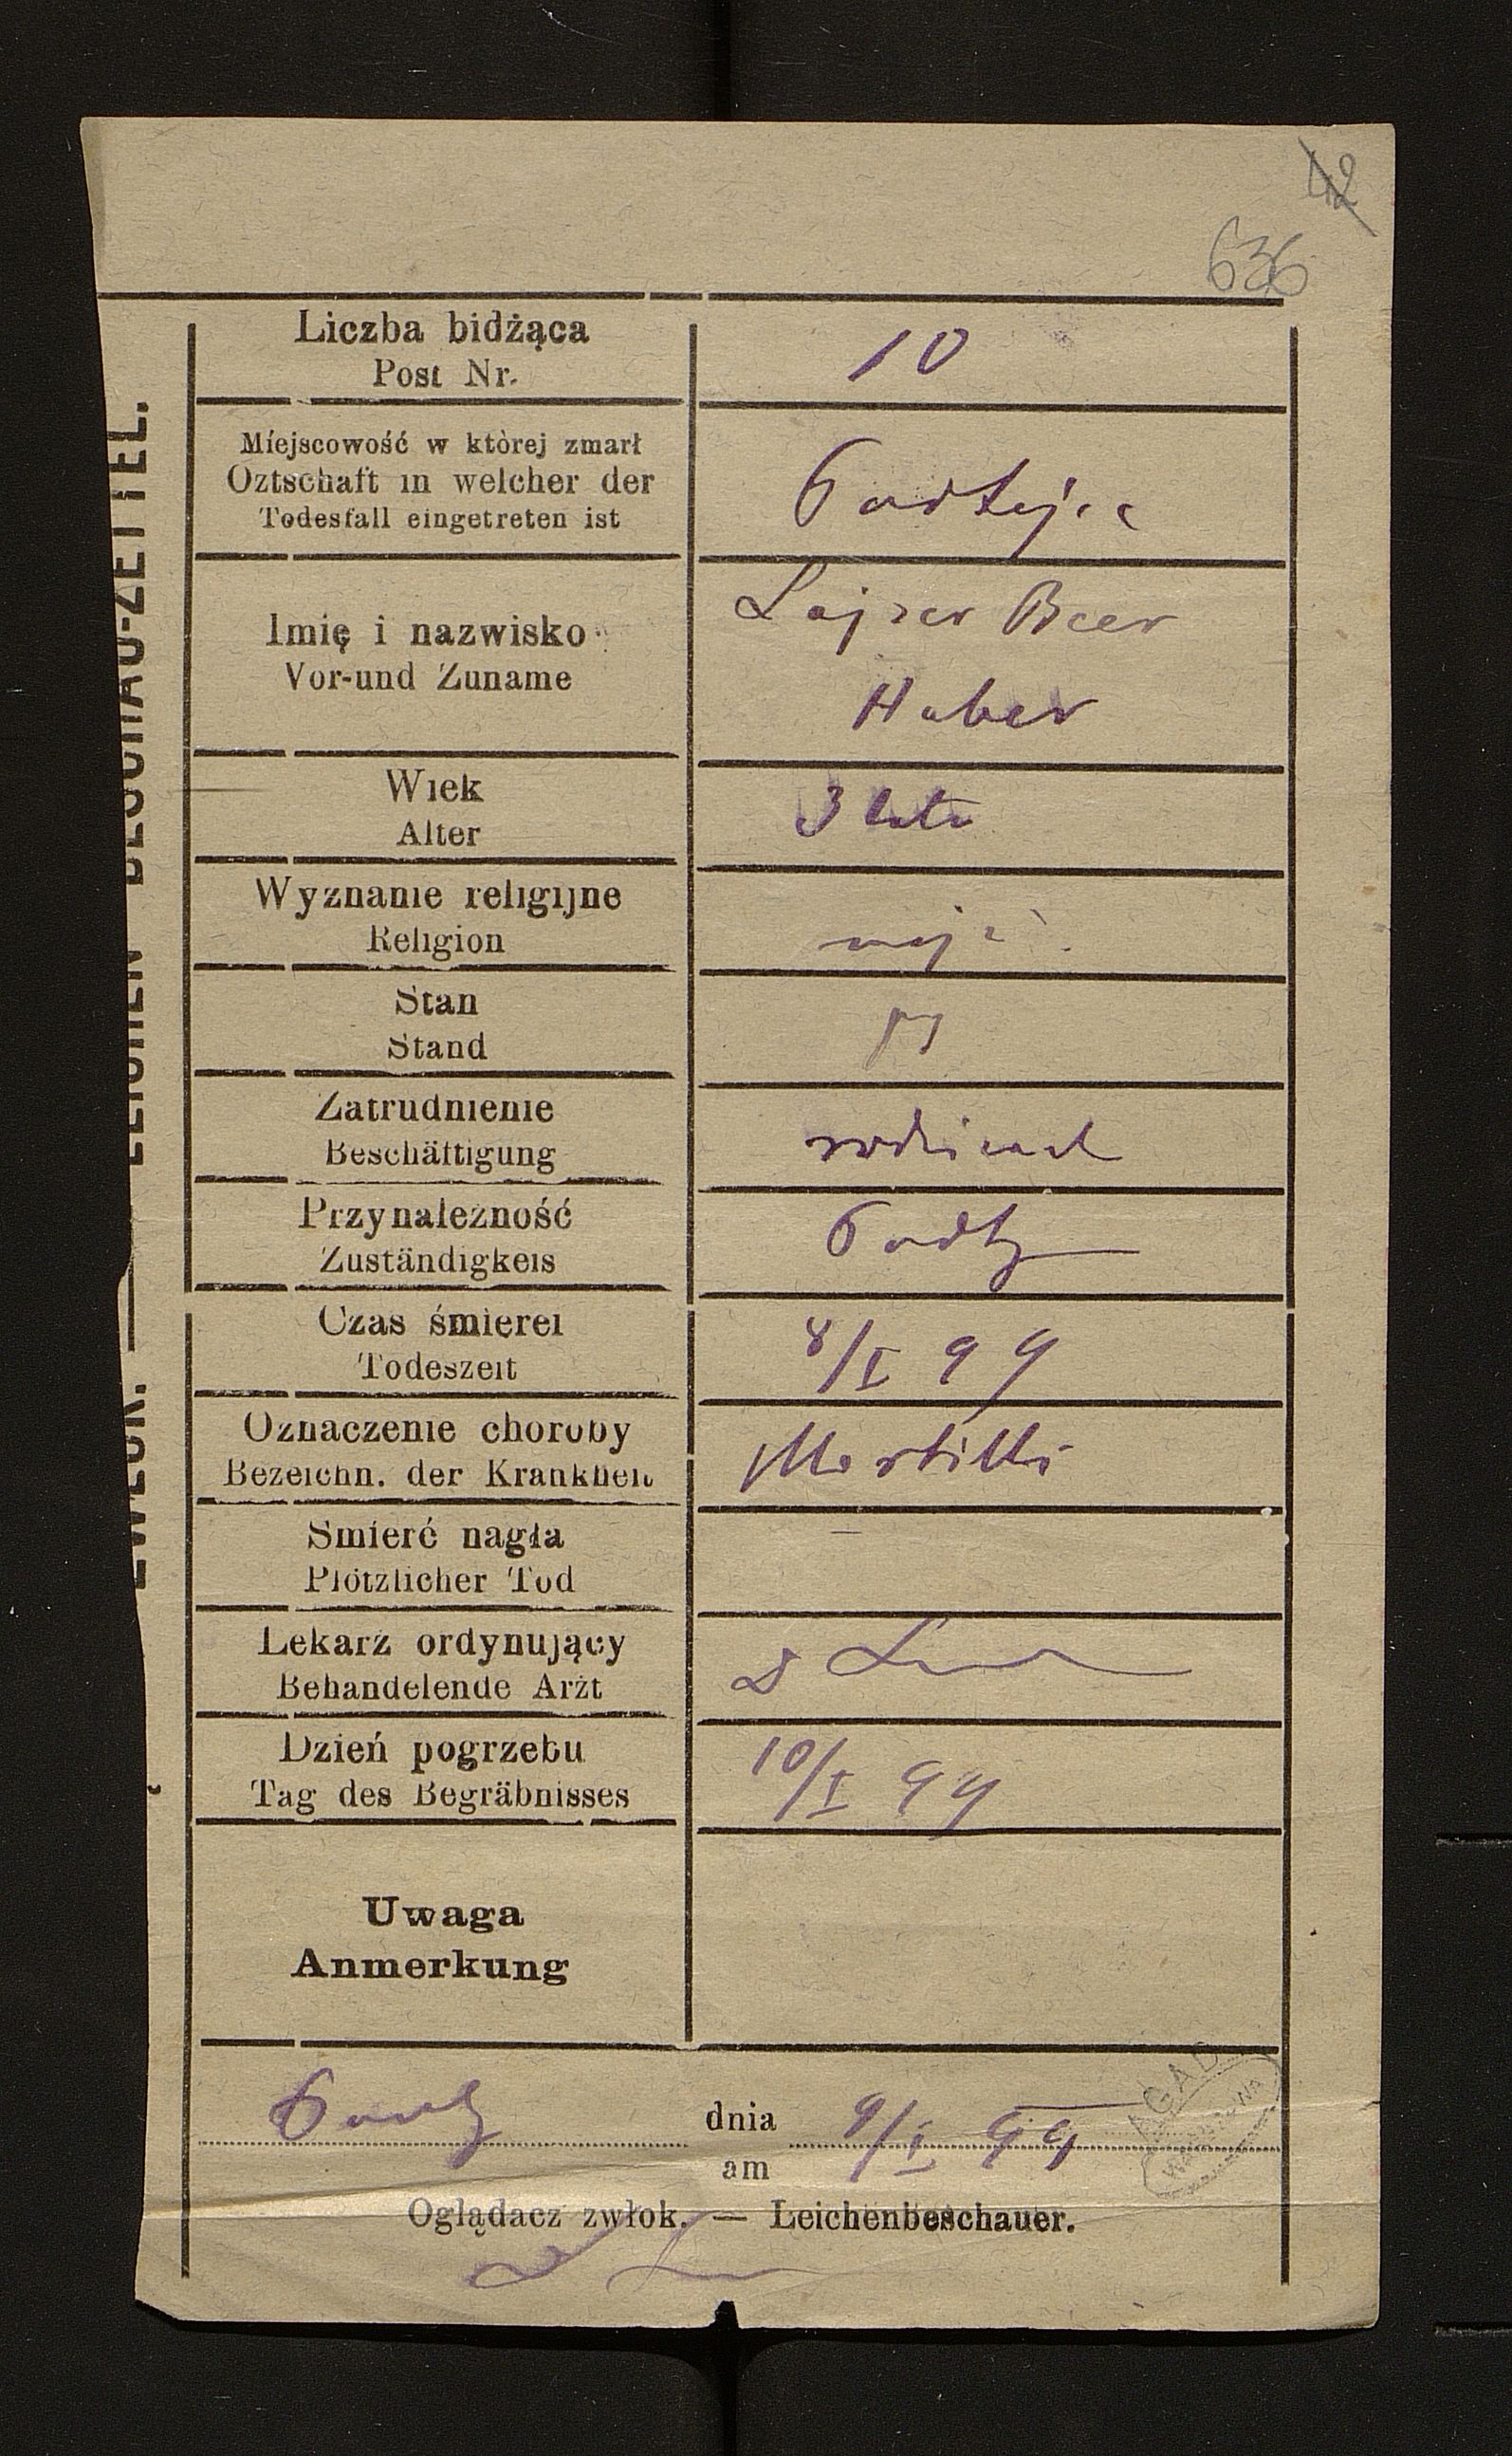 42
636
Liczba bidżąca
Post Nr.
10
Miejscowość w której zmarł
Oztschaft in welcher der
Todesfall eingetreten ist
Imię i nazwisko
Vor-und Zuname
Lajzer Beer
Haber
Wiek
Alter
3 lata
Wyznanie religijne
Religion
mojż.
Stan
Stand
Zatrudnienie
Beschäftigung
Przynależność
Zuständigkeis
Czas śmierei
Todeszeit
8/I 99
Oznaczenie choroby
Bezeichn. der Krankheit
Morbilli
Smierć nagła
Plötzlicher Tod
Lekarz ordynujący
Behandelende Arżt
Dzień pogrzebu
Tag des Begräbnisses
10/I 99
Uwaga
Anmerkung
dnia
am
9/I 99
Oglądacz zwłok. — Leichenbeschauer.
AGAD
WARSZAWA
ZWŁOK. — LEICHEN-BESCHAU-ZETTEL.